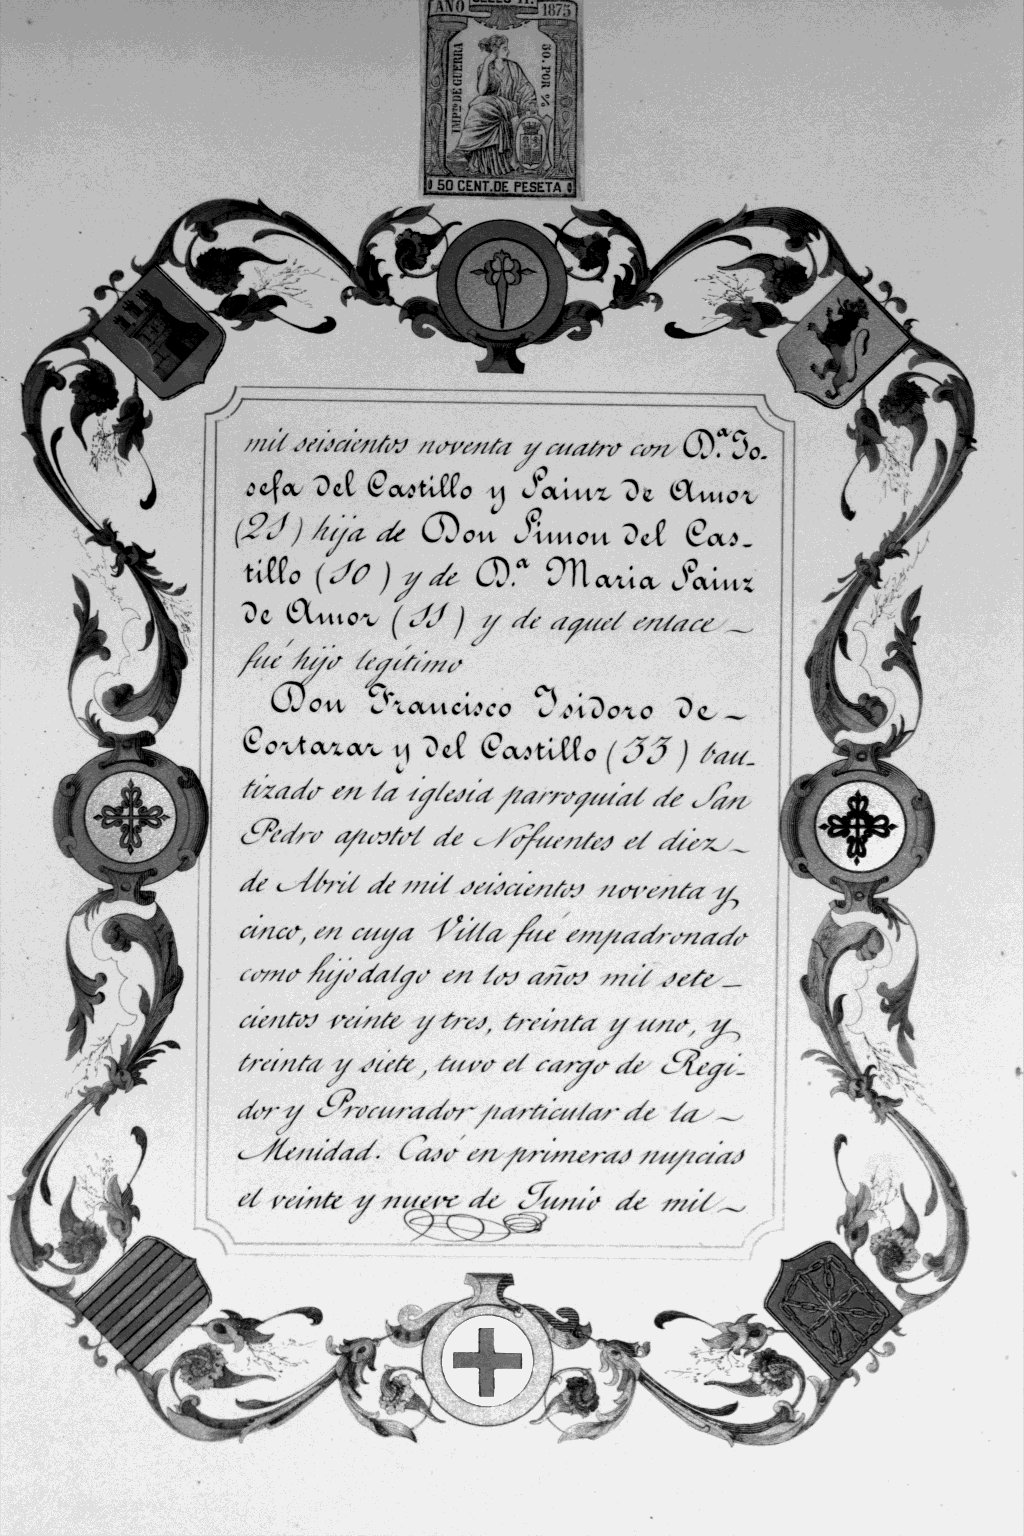 AÑO SELLO 11.º 1875
IMP.to DE GUERRA
50. POR %
50 CENT. DE PESETA
mil seiscientos noventa y cuatro con D.ª Jo-
sefa del Castillo y Sainz de Amor
(21) hija de Don Simon del Cas-
tillo (10) y de D.ª Maria Sainz
de Amor (11) y de aquel enlace
fué hijo legítimo
Don Francisco Isidoro de
Cortazar y del Castillo (33) bau-
tizado en la iglesia parroquial de San
Pedro apostol de Nofuentes el diez
de Abril de mil seiscientos noventa y
cinco, en cuya Villa fué empadronado
como hijodalgo en los años mil sete-
cientos veinte y tres, treinta y uno, y
treinta y siete, tuvo el cargo de Regi-
dor y Procurador particular de la
Menidad. Casó en primeras nupcias
el veinte y nueve de Junio de mil